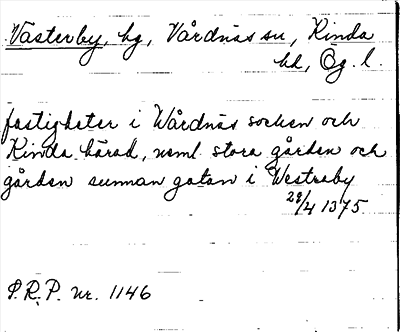 Västerby, by, Vårdnäs sn, Kinda
hd, Ög. l.
fastigheter i Wårdnäs socken och
Kinda härad, neml. stora gården och
gården sunnan gatan i Westraby
28/4 1375
S.R.P. nr. 1146